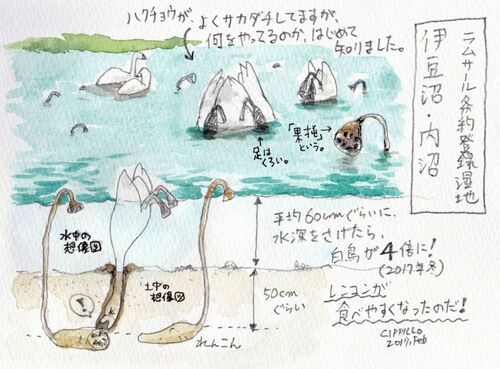 ハクチョウが、よくサカダチしてますが、
何をやってるのか、はじめて
知りました。
ラムサール条約登録湿地
伊豆沼・内沼
足は
くろい。
「果托」
という。
水中の
想像図
土中の
想像図
平均60cmぐらいに、
水深をさげたら、
白鳥が4倍に!
(2017年冬)
50cm
ぐらい
レンコンが
食べやすくなったのだ!
れんこん
CIPPILLO
2017, Feb